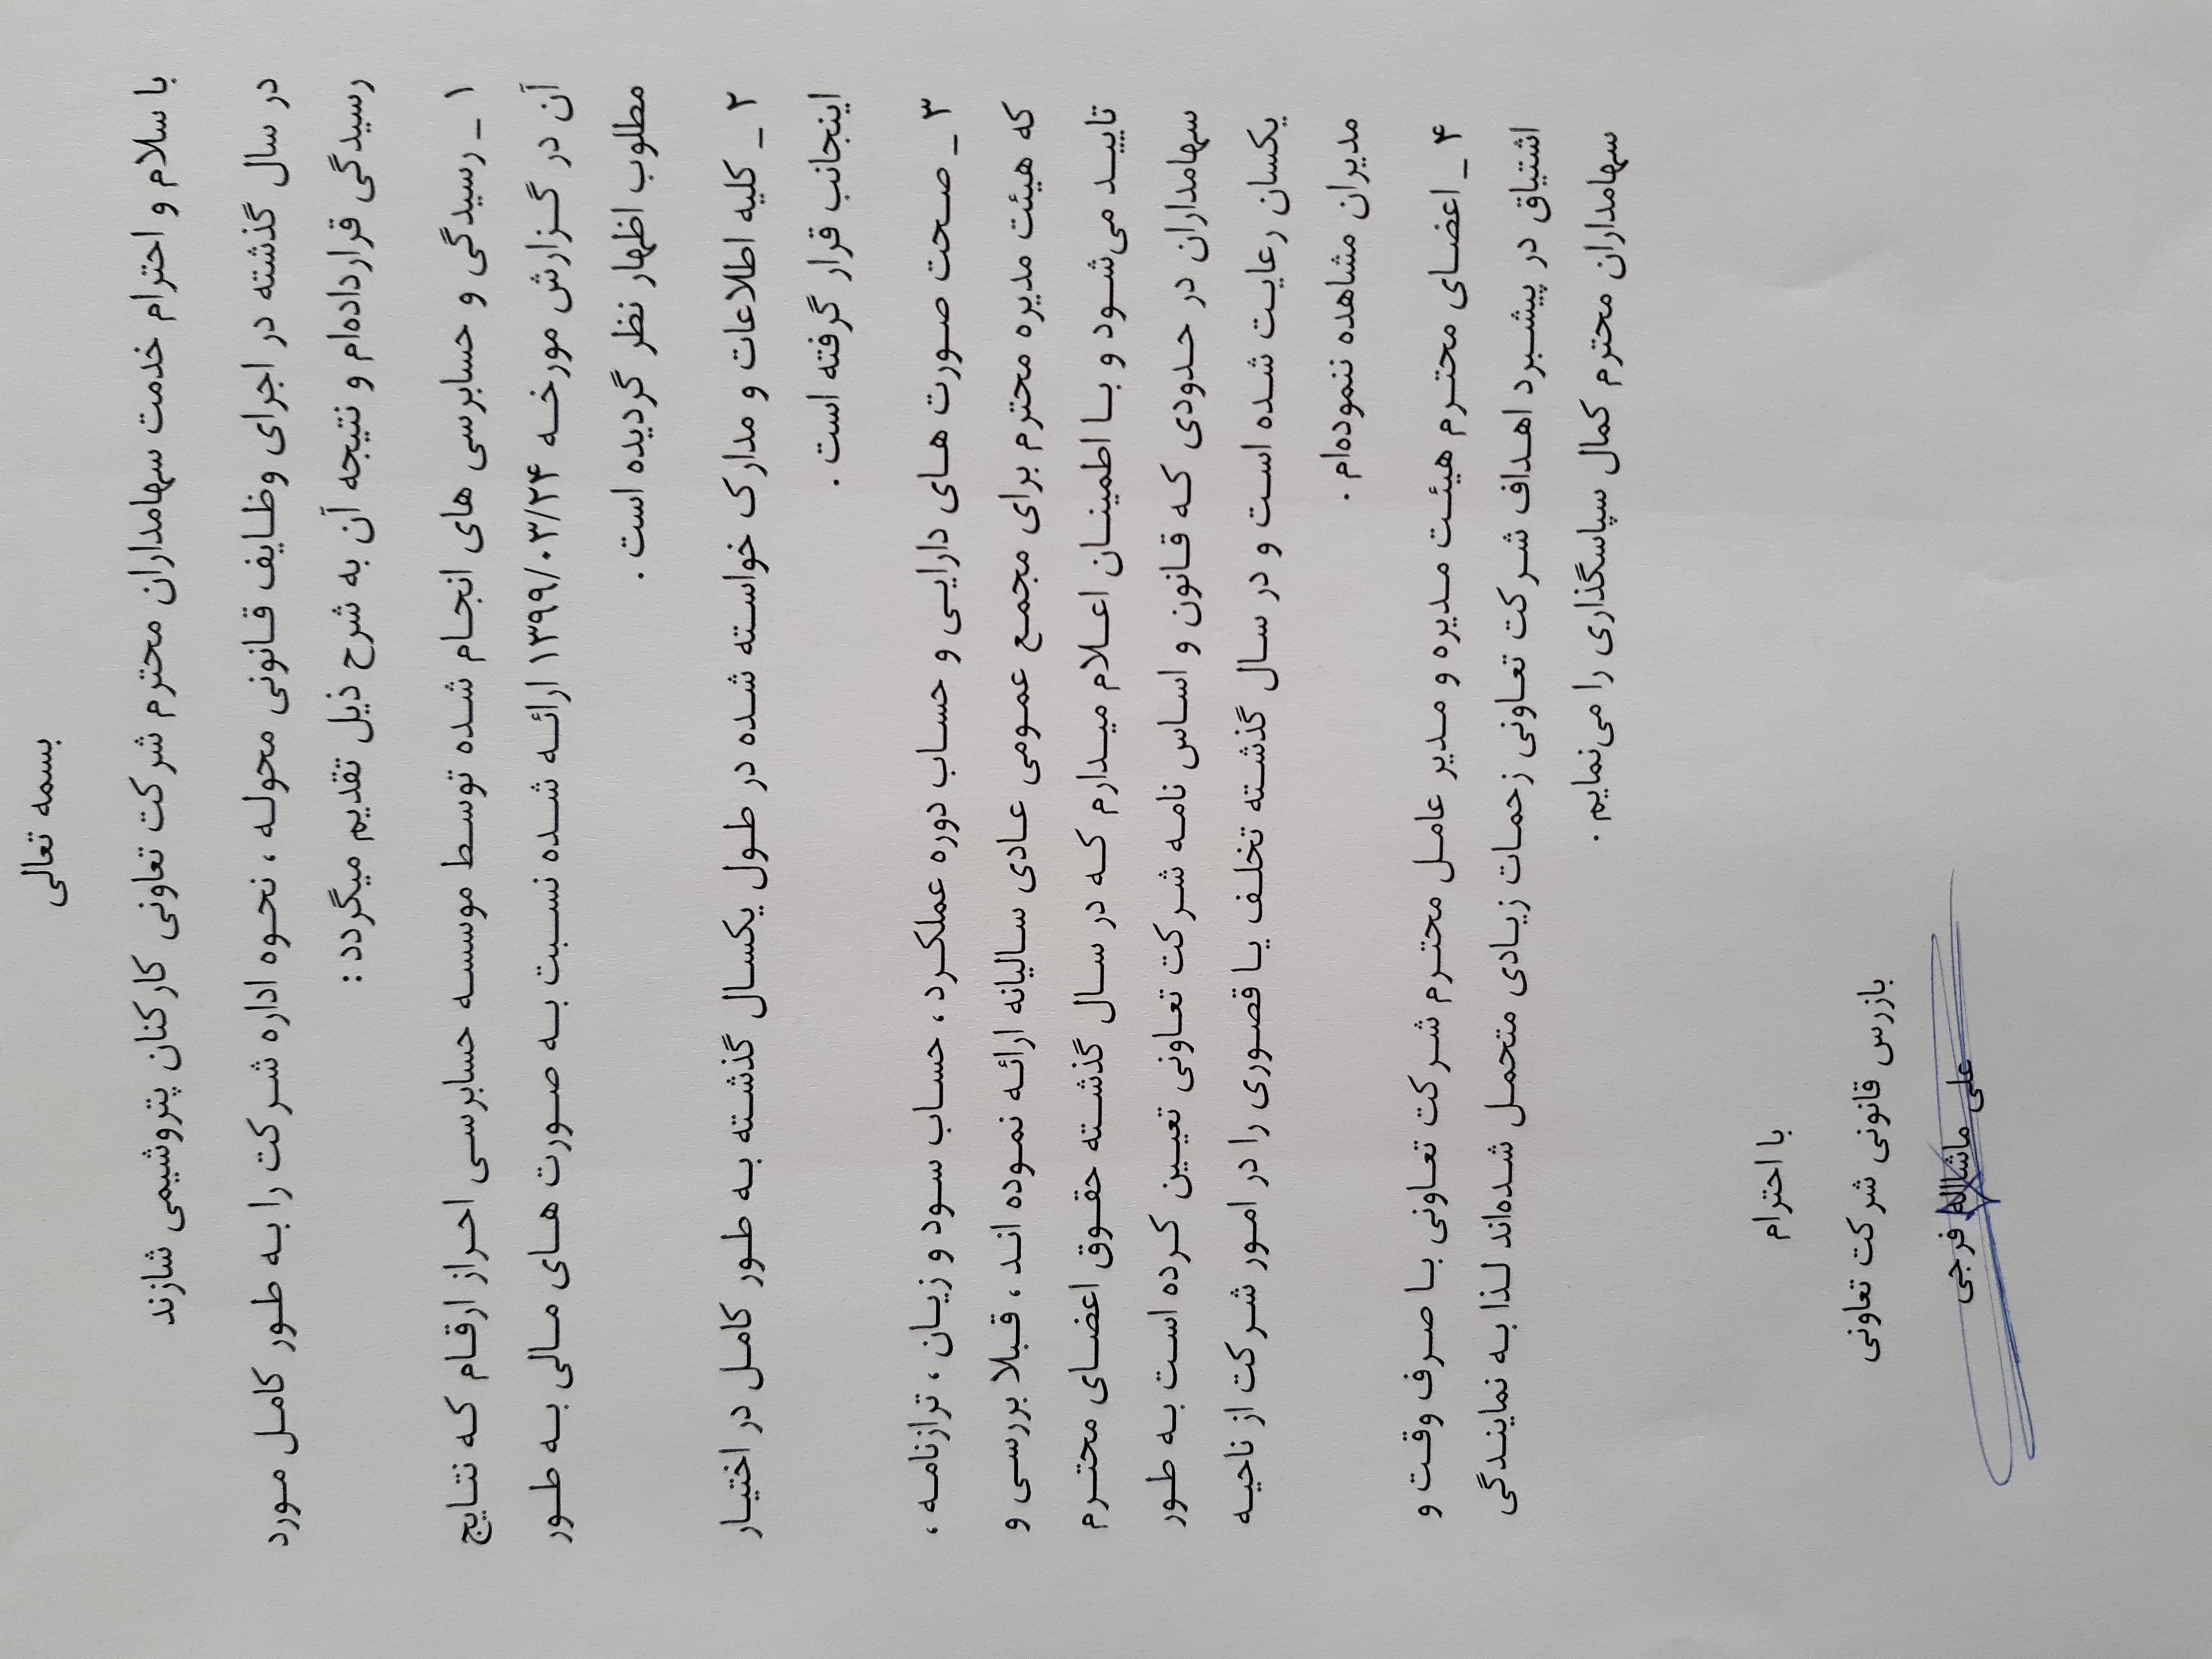 بسمه تعالی
با سلام و احترام خدمت سهامداران محترم شرکت تعاونی کارکنان پتروشیمی شازند
در سال گذشته در اجرای وظایف قانونی محوله ، نحوه اداره شرکت را به طور کامل مورد
رسیدگی قرارداده‌ام و نتیجه آن به شرح ذیل تقدیم میگردد :
۱ _ رسیدگی و حسابرسی های انجام شده توسط موسسه حسابرسی احراز ارقام که نتایج
آن در گزارش مورخه ۱۳۹۹/۰۳/۲۴ ارائه شده نسبت به صورت های مالی به طور
مطلوب اظهار نظر گردیده است .
۲ _ کلیه اطلاعات و مدارک خواسته شده در طول یکسال گذشته به طور کامل در اختیار
اینجانب قرار گرفته است .
۳ _ صحت صورت های دارایی و حساب دوره عملکرد ، حساب سود و زیان ، ترازنامه ،
که هیئت مدیره محترم برای مجمع عمومی عادی سالیانه ارائه نموده اند ، قبلا بررسی و
تایید می‌شود و با اطمینان اعلام میدارم که در سال گذشته حقوق اعضای محترم
سهامداران در حدودی که قانون و اساس نامه شرکت تعاونی تعیین کرده است به طور
یکسان رعایت شده است و در سال گذشته تخلف یا قصوری را در امور شرکت از ناحیه
مدیران مشاهده ننموده‌ام .
۴ _ اعضای محترم هیئت مدیره و مدیر عامل محترم شرکت تعاونی با صرف وقت و
اشتیاق در پیشبرد اهداف شرکت تعاونی زحمات زیادی متحمل شده‌اند لذا به نمایندگی
سهامداران محترم کمال سپاسگذاری را می‌نمایم .
با احترام
بازرس قانونی شرکت تعاونی
علی ماشاالله فرجی